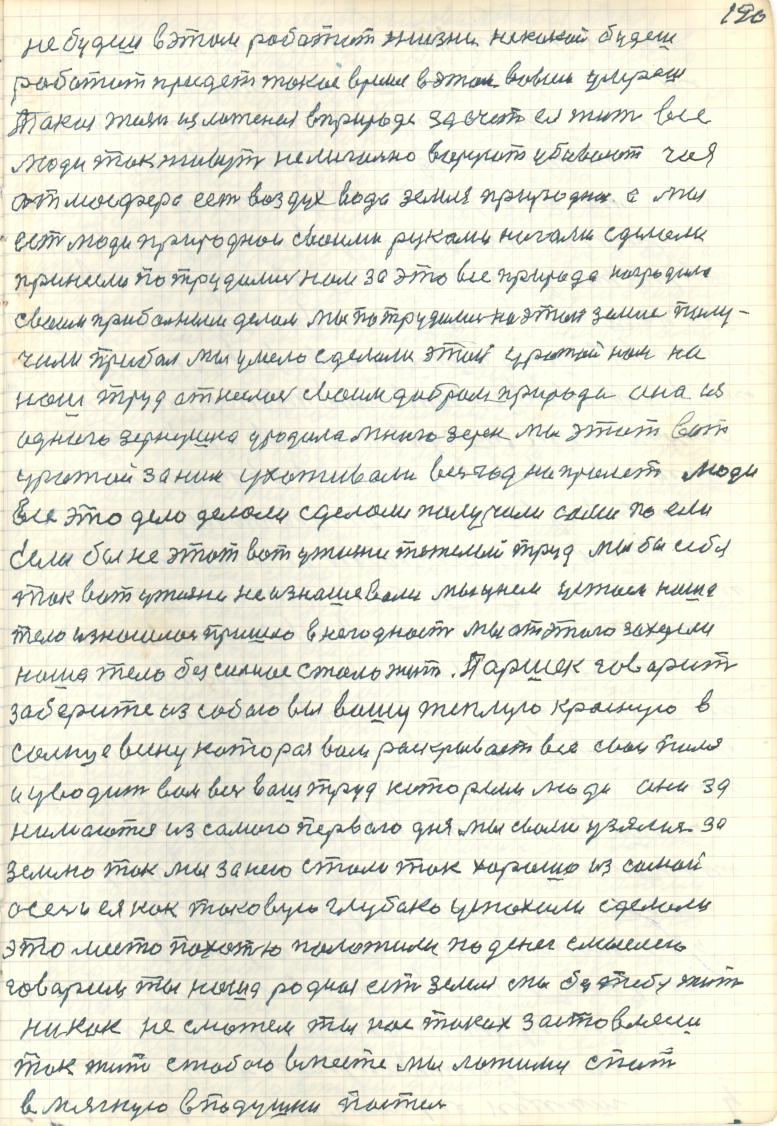 190
не будеш в этом работат жизни некакой будеш
работат придет такое время в этом вовсем умреш
Такая жизн изложеная в природе за счет ея жит все
люди так живут нелигално воруют убивают чея
атмосфера ест воздух вода земля природна а мы
ест люди природнои своими руками начали сделали
принесли потрудилис нам за это все природа наградила
своим прибольным делом мы потрудилис на этой земле полу-
чили прибал мы умело сделали этот урожай нам на
наш труд атнеслас своим добром природа она из
аднаго зернушка уродила много зерен мы этот вот
урожай за ним ухаживали вес год на пролет люди
все это дело делали сделали получили сами по ели
Если бы не этот вот ужини тежелый труд мы бы себя
так вот ужасно не изнашевали мы умели наше
тело износилос пришло в негодност мы от этого захирели
наше тело без силное стало жит. Паршек говарит
заберите из собою вы вашу теплую красную в
солнце весну каторая вам раскрывает все свои поля
и уводит вам вес ваш труд которым люди они за
нимаются из самого первого дня мы сваи узялис за
землю так мы за нею стали так хорошо из самой
осени ея как таковую глубако успахали сделали
это место пахотю положили на денег смыслел
говарим ты наша родная ест земля мы без тебе жит
никак не сможем ты нас таких заставляеш
так жит с табою вместе мы ложимся спат
в мягкую в падушки постел